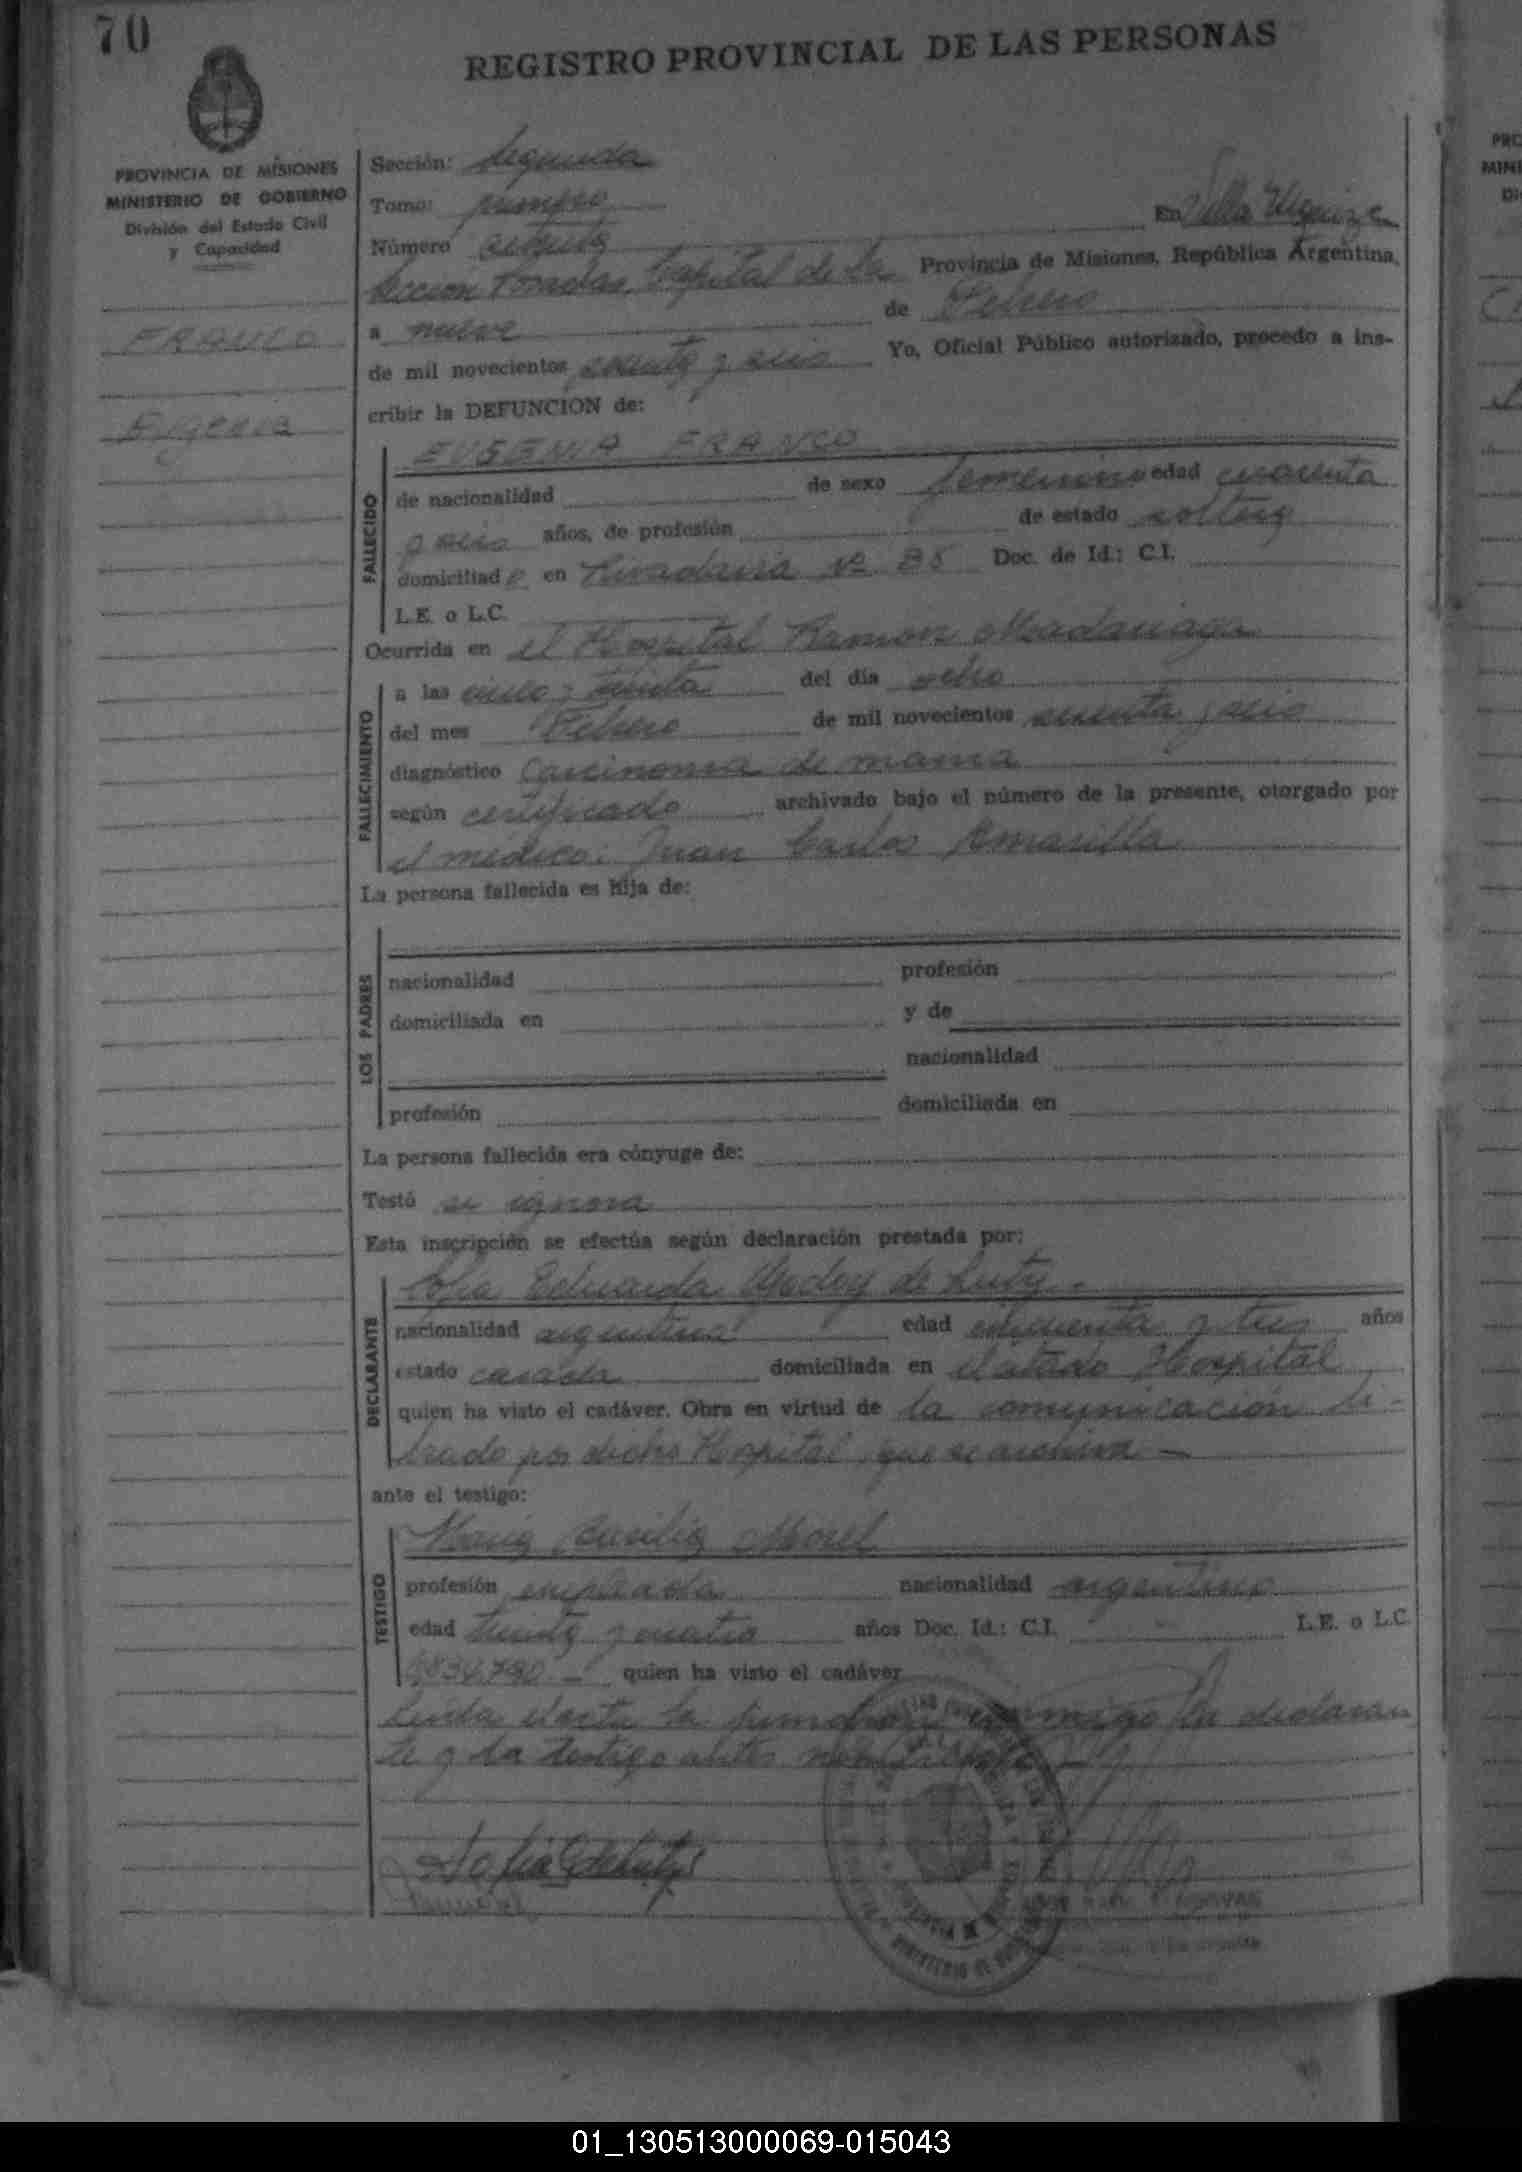 70
REGISTRO PROVINCIAL DE LAS PERSONAS
PROVINCIA DE MISIONES
MINISTERIO DE GOBIERNO
División del Estado Civil
y Capacidad
FRANCO
Eugenia
Sección: Segunda
Tomo: primero
Número setenta En Villa Urquiza
Sección Posadas, Capital de la Provincia de Misiones, República Argentina,
a nueve de Febrero
de mil novecientos sesenta y seis Yo, Oficial Público autorizado, procedo a ins-
cribir la DEFUNCION de:
FALLECIDO
EUGENIA FRANCO
de nacionalidad de sexo femenino edad cuarenta
y seis años, de profesión de estado soltera
domiciliada en Rivadavia nº 85 Doc. de Id.: C.I.
L.E. o L.C.
Ocurrida en el Hospital Ramon Madariaga
FALLECIMIENTO
a las cinco y treinta del día ocho
del mes Febrero de mil novecientos sesenta y seis
diagnóstico Carcinoma de mama
según certificado archivado bajo el número de la presente, otorgado por
el médico: Juan Carlos Amarilla
La persona fallecida es hija de:
LOS PADRES
nacionalidad profesión
domiciliada en y de
nacionalidad
profesión domiciliada en
La persona fallecida era cónyuge de:
Testó se ignora
Esta inscripción se efectúa según declaración prestada por:
DECLARANTE
Sofia Eduarda Godoy de
nacionalidad argentina edad cincuenta y tres años
estado casada domiciliada en el citado Hospital
quien ha visto el cadáver. Obra en virtud de la comunicación li-
brado por dicho Hospital, que se archiva.—
ante el testigo:
TESTIGO
Maria Morel
profesión empleada nacionalidad argentina
edad treinta y cuatro años Doc. Id.: C.I. L.E. o L.C.
quien ha visto el cadáver
Leida el acta la firman conmigo la declaran
te y la testigo antes
PROVINCIA DE
MINISTERIO DE
01_130513000069-015043